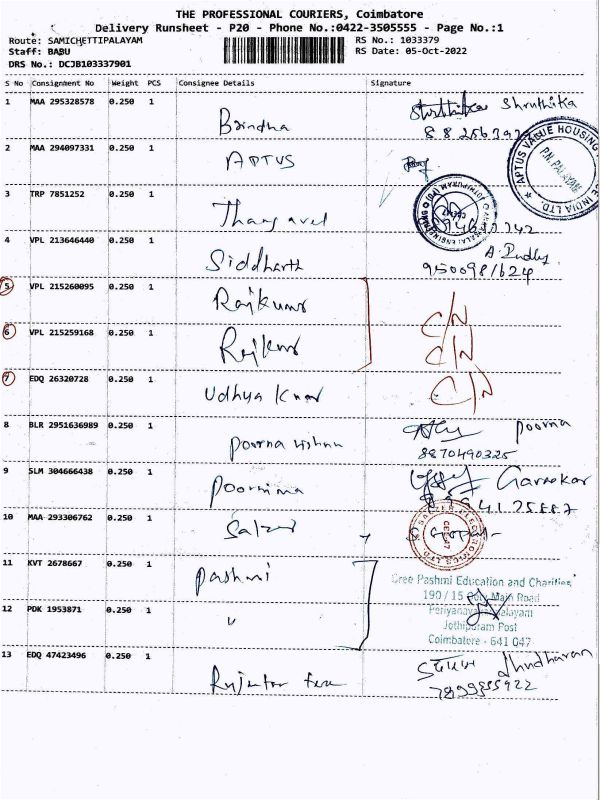 THE PROFESSIONAL COURIERS, Coimbatore
Delivery Runsheet - P20 - Phone No.:0422-3505555 - Page No.:1
Route: SAMICHETTIPALAYAM RS No.: 1033379
Staff: BABU RS Date: 05-Oct-2022
DRS No.: DCJB103337901
S No Consignment No Weight PCS Consignee Details Signature
1 MAA 295328578 0.250 1 Brindha Shruthika
2 MAA 294097331 0.250 1 APTUS
APTUS VALUE HOUSING INDIA LTD.
P.N. PALAYAM
3 TRP 7851252 0.250 1 Thangavel
4 VPL 213646440 0.250 1 Siddharth
9500981624
5 VPL 215260095 0.250 1 Rajkumar C/N
6 VPL 215259168 0.250 1 Rajkumar C/N
7 EDQ 26320728 0.250 1 Udhya Kumar C/N
8 BLR 2951636989 0.250 1 Poorna vishnu Poorna
8870490325
9 SLM 304666438 0.250 1 Poornima
10 MAA 293306762 0.250 1 Salzer
11 KVT 2678667 0.250 1 Pashmi
Sree Pashmi Education and Charities
190 / 15 Main Road
12 PDK 1953871 0.250 1 "
Jothipuram Post
Coimbatore - 641 047
13 EDQ 47423496 0.250 1